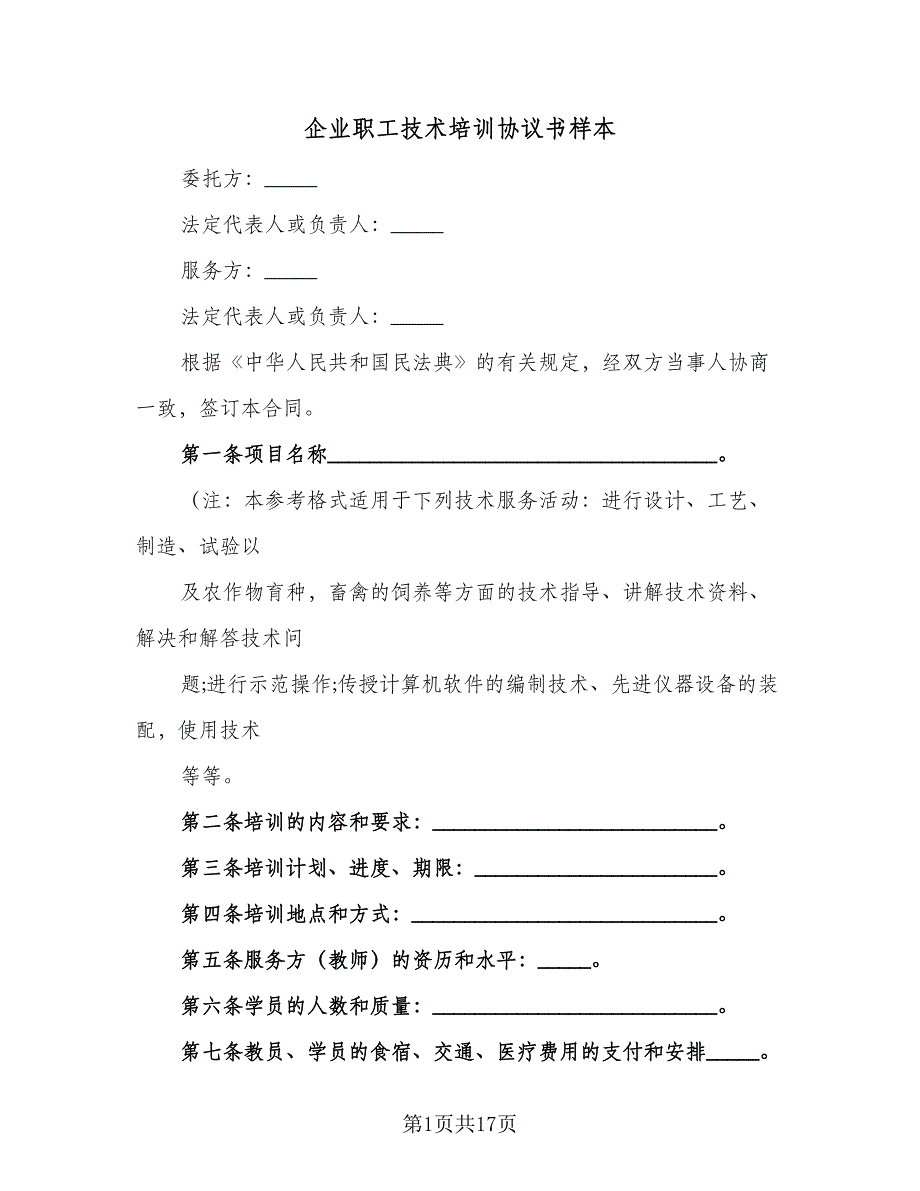 企业职工技术培训协议书样本
委托方：_____
法定代表人或负责人：_____
服务方：_____
法定代表人或负责人：_____
根据《中华人民共和国民法典》的有关规定，经双方当事人协商
一致，签订本合同。
第一条项目名称_____________________________________。
（注：本参考格式适用于下列技术服务活动：进行设计、工艺、
制造、试验以
及农作物育种，畜禽的饲养等方面的技术指导、讲解技术资料、
解决和解答技术问
题;进行示范操作;传授计算机软件的编制技术、先进仪器设备的装
配，使用技术
等等。
第二条培训的内容和要求：___________________________。
第三条培训计划、进度、期限：_______________________。
第四条培训地点和方式：_____________________________。
第五条服务方（教师）的资历和水平：_____。
第六条学员的人数和质量：___________________________。
第七条教员、学员的食宿、交通、医疗费用的支付和安排_____。
第1页共17页